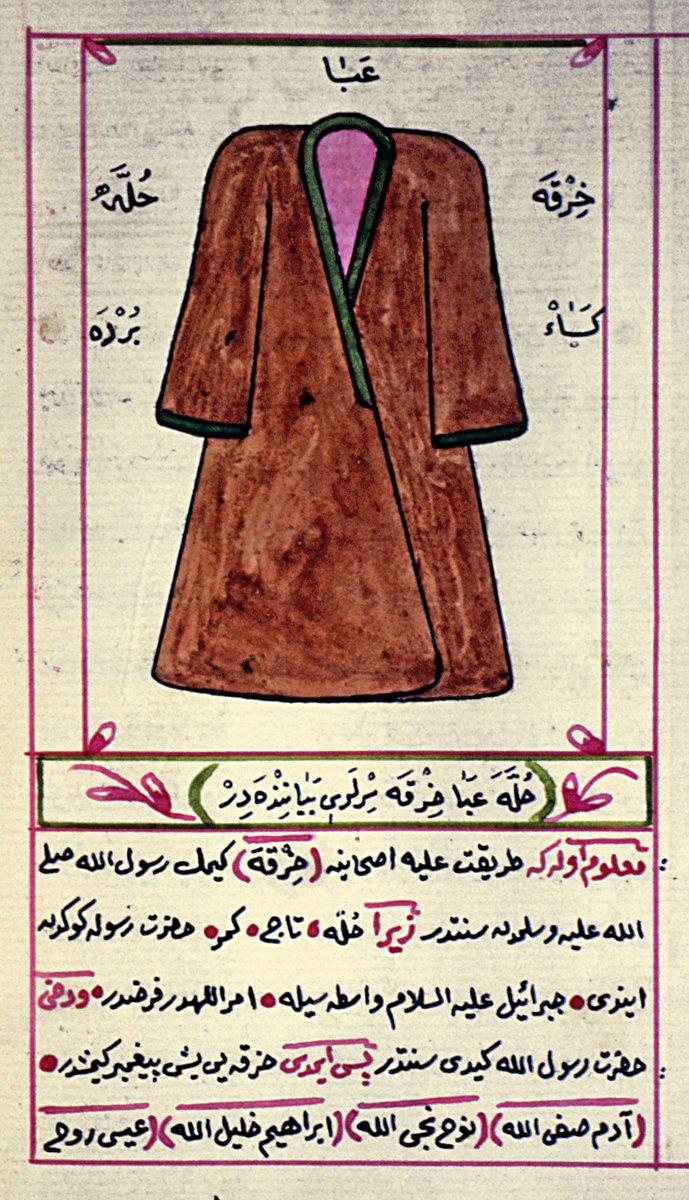 عَبَا
خِرْقَه
حُلَّه
كَسَاءْ
بُرْدَه
حُلَّه عَبَا خِرْقَه سِرْلَرِي بَيَانِنْدَه دِرْ
معلوم اوله كه طريقت عليه اصحابنه (خِرْقَه) كيمك رسول الله صلى
الله عليه وسلمدن سنتدر زيرا حُلّه تاجى كمر حضرت رسوله كوكدن
ايندى جبرائيل عليه السلام واسطه سيله امر اللهدر فرضدر ودخى
حضرت رسول الله كيدى سنتدر پس ايمدى خرقه يى بش پيغمبر كيمشدر
(آدم صفى الله) (نوح نجى الله) (ابراهيم خليل الله) (عيسى روح